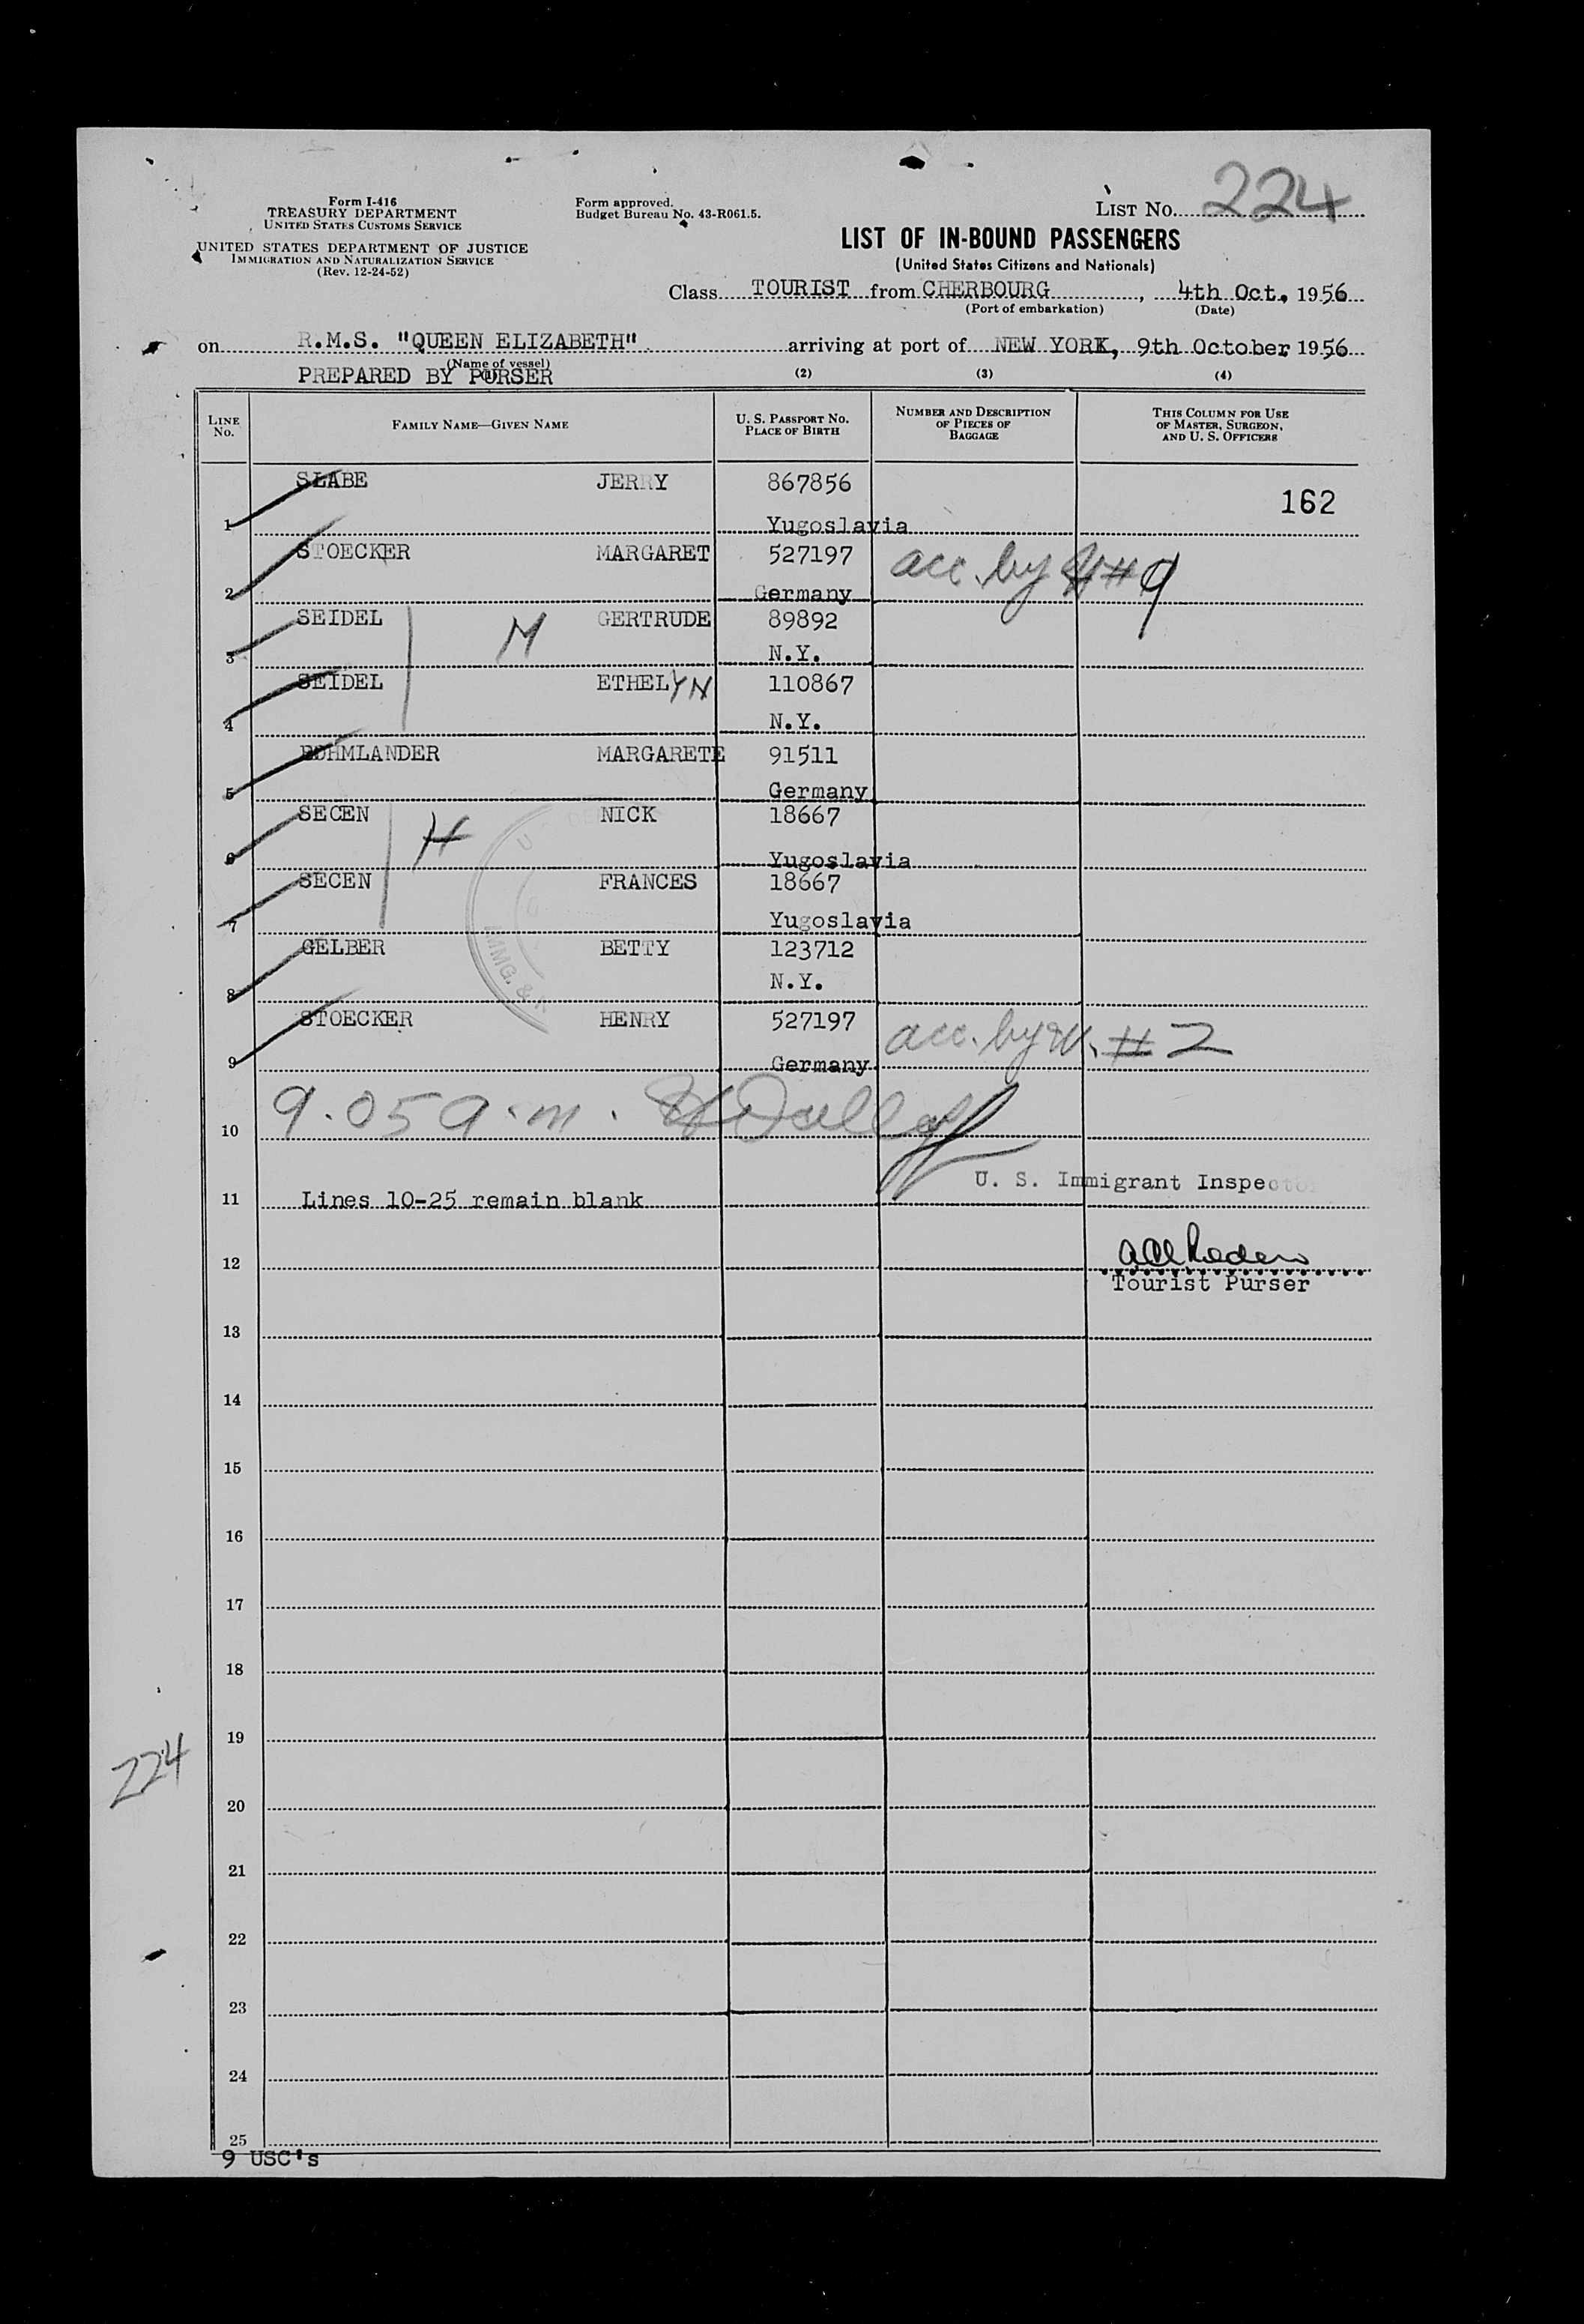 Form I-416
TREASURY DEPARTMENT
UNITED STATES CUSTOMS SERVICE
UNITED STATES DEPARTMENT OF JUSTICE
IMMIGRATION AND NATURALIZATION SERVICE
(Rev. 12-24-52)
Form approved.
Budget Bureau No. 43-R061.5.
LIST NO. 224
LIST OF IN-BOUND PASSENGERS
(United States Citizens and Nationals)
Class TOURIST from CHERBOURG, 4th Oct. 1956
(Port of embarkation) (Date)
on R.M.S. "QUEEN ELIZABETH" arriving at port of NEW YORK, 9th October 1956
(Name of vessel)
PREPARED BY PURSER
(1) (2) (3) (4)
LINE NO. FAMILY NAME—GIVEN NAME U. S. PASSPORT NO. PLACE OF BIRTH NUMBER AND DESCRIPTION OF PIECES OF BAGGAGE THIS COLUMN FOR USE OF MASTER, SURGEON, AND U. S. OFFICERS
SLABE JERRY 867856
162
1 Yugoslavia
STOECKER MARGARET 527197 acc. by H#9
2 Germany
SEIDEL M GERTRUDE 89892
3 N.Y.
SEIDEL ETHELYN 110867
4 N.Y.
MARGARETE 91511
5 Germany
SECEN H NICK 18667
6 Yugoslavia
SECEN FRANCES 18667
7 Yugoslavia
GELBER BETTY 123712
8 N.Y.
STOECKER HENRY 527197 acc. by W. #2
9 Germany
IMMG. &
10 9.05 a.m.
U. S. Immigrant Inspector
11 Lines 10-25 remain blank
12
Tourist Purser
13
14
15
16
17
18
19
224
20
21
22
23
24
25
9 USC's